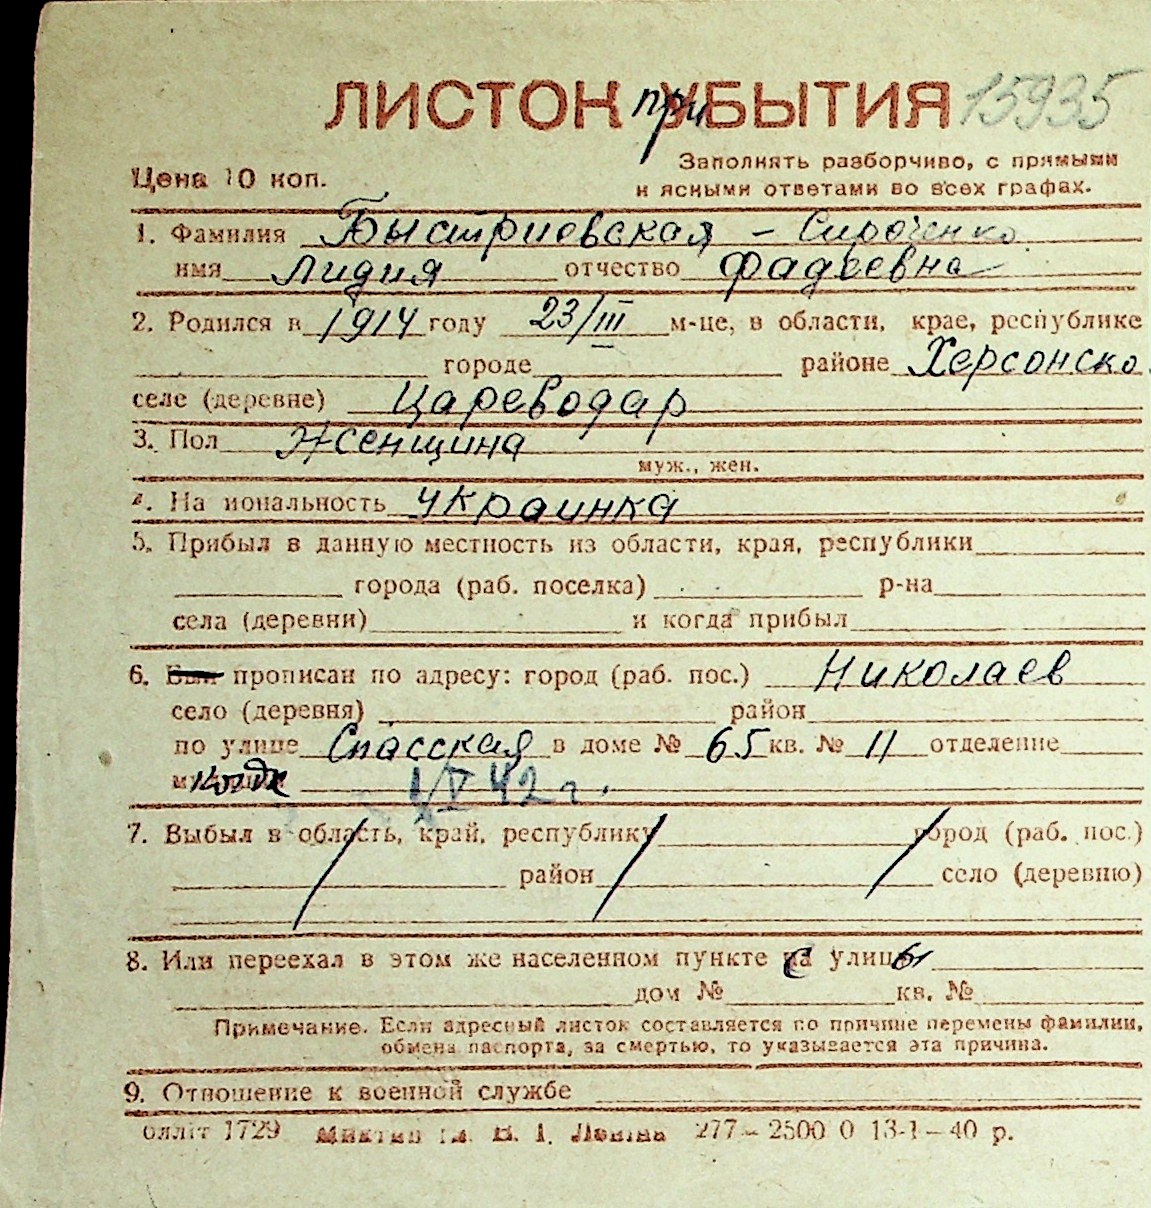 ЛИСТОК прИБЫТИЯ 15935
Цена 10 коп.
Заполнять разборчиво, с прямыми
и ясными ответами во всех графах.
1. Фамилия Быстриевская - Сироченко
имя Лидия отчество Фадеевна
2. Родился в 1914 году 23/III м-це, в области, крае, республике
городе районе Херсонско
селе (деревне) Цареводар
3. Пол Женщина
муж., жен.
4. На иональность украинка
5. Прибыл в данную местность из области, края, республики
города (раб. поселка) р-на
села (деревни) и когда прибыл
6. Был прописан по адресу: город (раб. пос.) Николаев
село (деревня) район
по улице Спасская в доме № 65 кв. № 11 отделение
когда 1/V 42 г.
7. Выбыл в область, край, республику город (раб. пос.)
район село (деревню)
8. Или переехал в этом же населенном пункте с улицы
дом № кв. №
Примечание. Если адресный листок составляется по причине перемены фамилии,
обмена паспорта, за смертью, то указывается эта причина.
9. Отношение к военной службе
1729 277 - 2500 0 13-1 - 40 р.